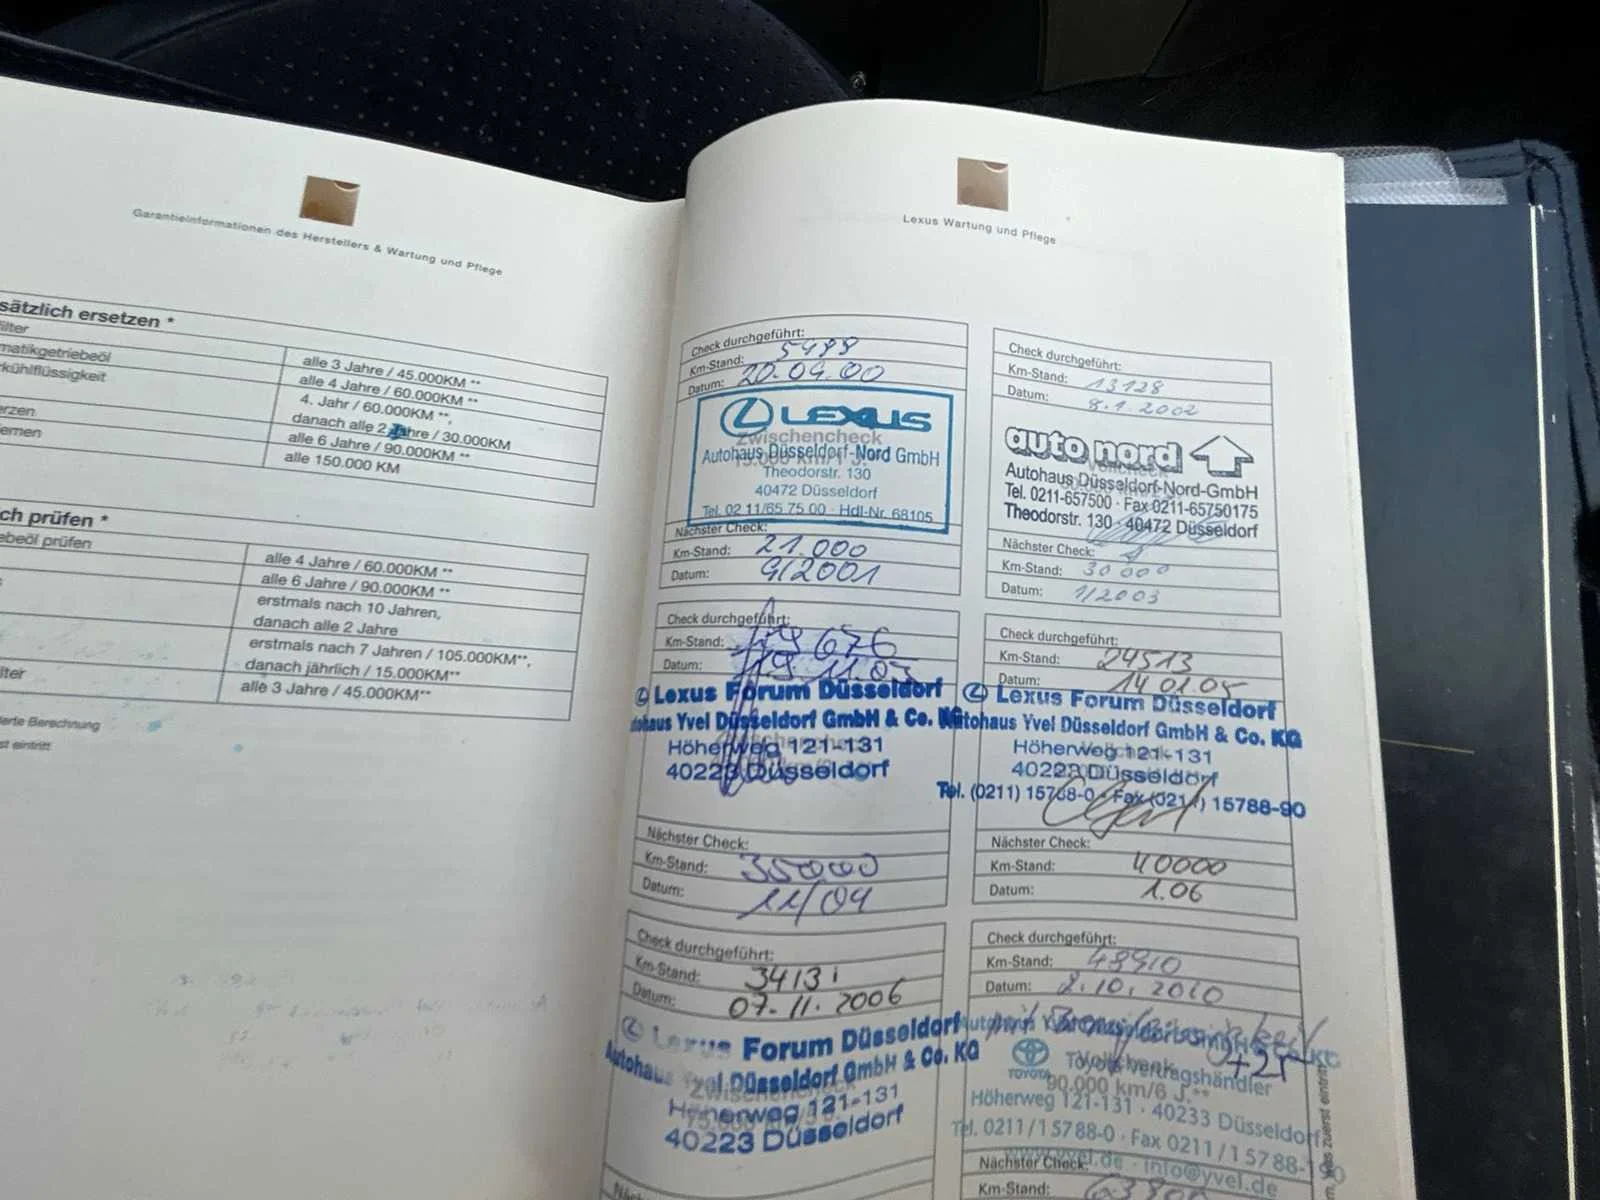 Garantieinformationen des Herstellers & Wartung und Pflege
sätzlich ersetzen *
filter
matikgetriebeöl
alle 3 Jahre / 45.000KM **
kühlflüssigkeit
alle 4 Jahre / 60.000KM **
4. Jahr / 60.000KM **,
danach alle 2 Jahre / 30.000KM
erzen
alle 6 Jahre / 90.000KM **
iemen
alle 150.000 KM
ch prüfen *
ebeöl prüfen
alle 4 Jahre / 60.000KM **
alle 6 Jahre / 90.000KM **
erstmals nach 10 Jahren,
danach alle 2 Jahre
erstmals nach 7 Jahren / 105.000KM**,
danach jährlich / 15.000KM**
ilter
alle 3 Jahre / 45.000KM**
ierte Berechnung
st eintritt
Lexus Wartung und Pflege
Check durchgeführt:
Km-Stand: 5498
Datum: 20.09.00
LEXUS
Zwischencheck
Autohaus Düsseldorf-Nord GmbH
Theodorstr. 130
40472 Düsseldorf
Tel. 02 11/65 75 00 · Hdl-Nr. 68105
Nächster Check:
Km-Stand: 21.000
Datum: 9/2001
Check durchgeführt:
Km-Stand: 13128
Datum: 8.1.2002
auto nord
Autohaus Düsseldorf-Nord-GmbH
Tel. 0211-657500 · Fax 0211-65750175
Theodorstr. 130 · 40472 Düsseldorf
Nächster Check:
Km-Stand: 30000
Datum: 1/2003
Check durchgeführt:
Km-Stand: 19676
Datum: 19.11.03
Lexus Forum Düsseldorf
Autohaus Yvel Düsseldorf GmbH & Co. KG
Höherweg 121-131
40223 Düsseldorf
Nächster Check:
Km-Stand: 35000
Datum: 11/04
Check durchgeführt:
Km-Stand: 24513
Datum: 14.01.05
Lexus Forum Düsseldorf
Autohaus Yvel Düsseldorf GmbH & Co. KG
Höherweg 121-131
40223 Düsseldorf
Tel. (0211) 15788-0 · Fax (0211) 15788-90
Nächster Check:
Km-Stand: 40000
Datum: 1.06
Check durchgeführt:
Km-Stand: 34131
Datum: 07.11.2006
Lexus Forum Düsseldorf
Autohaus Yvel Düsseldorf GmbH & Co. KG
Zwischencheck
Höherweg 121-131
40223 Düsseldorf
Check durchgeführt:
Km-Stand: 48910
Datum: 2.10.2010
TOYOTA
Toyota-Vertragshändler
90.000 km/6 J.**
Höherweg 121-131 · 40233 Düsseldorf
Tel. 0211/15788-0 · Fax 0211/15788-190
www.yvel.de · info@yvel.de
Nächster Check:
Km-Stand:
was zuerst eintritt